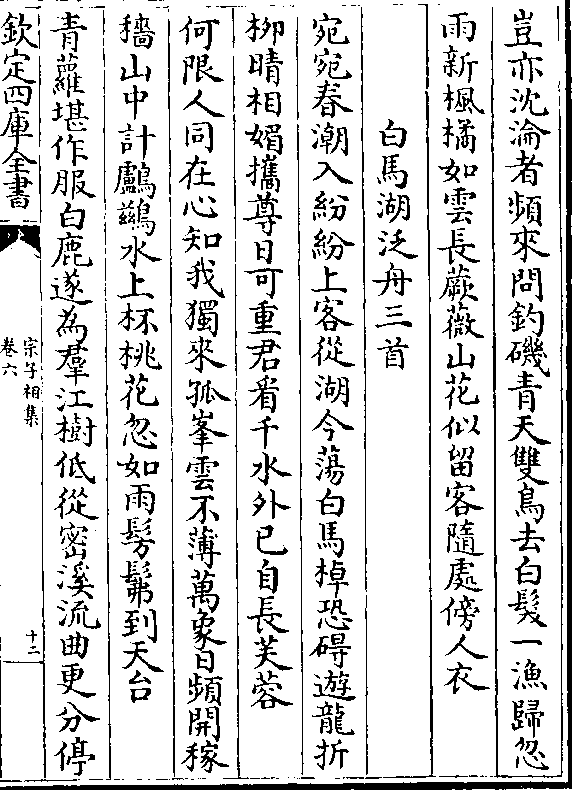 豈亦沈淪者頻來問釣磯青天雙鳥去白髮一漁歸忽
雨新楓橘如雲長蕨薇山花似留客隨處傍人衣
白馬湖泛舟三首
宛宛春潮入紛紛上客從湖今蕩白馬棹恐碍遊龍折
柳晴相媚攜尊日可重君看千水外已自長芙蓉
何限人同在心知我獨來孤峯雲不薄萬象日頻開稼
穡山中計鸕鷀水上杯桃花忽如雨髣髴到天台
青蘿堪作服白鹿遂為羣江樹低從密溪流曲更分停
欽定四庫全書
宗子相集
卷六
十二